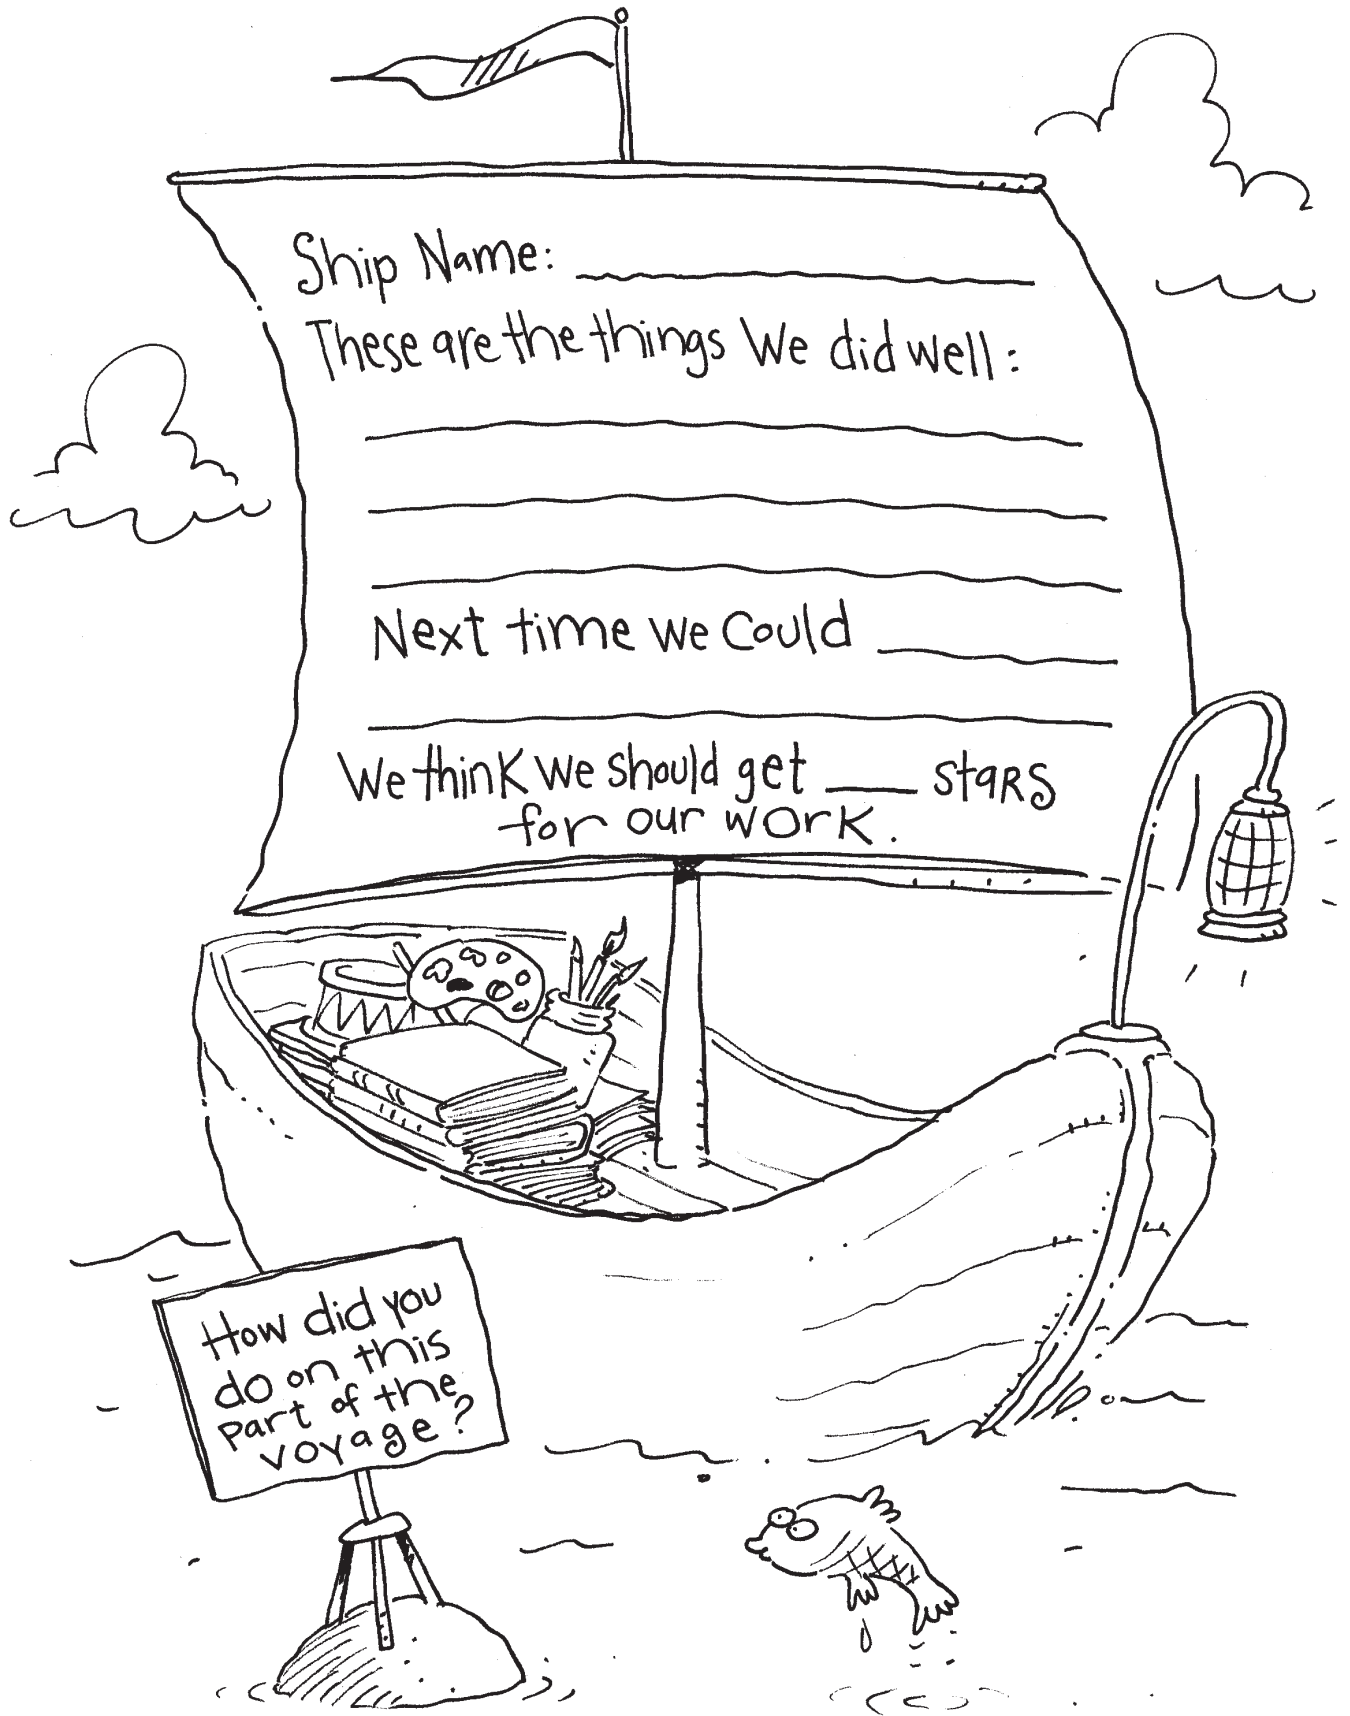 Ship Name:
These are the things We did well:
Next time we Could
We think we should get ____ staRS
for our work.
How did you
do on this
part of the
voyage?